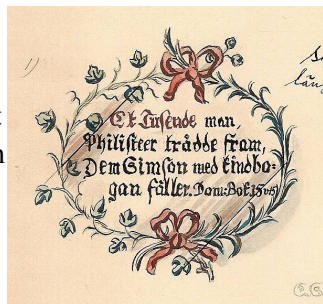 1)
Et Tusende man,
Philisteer trådde fram,
Dem Simson med kindbo=
gan fäller. Dom: Bok 15 v 15